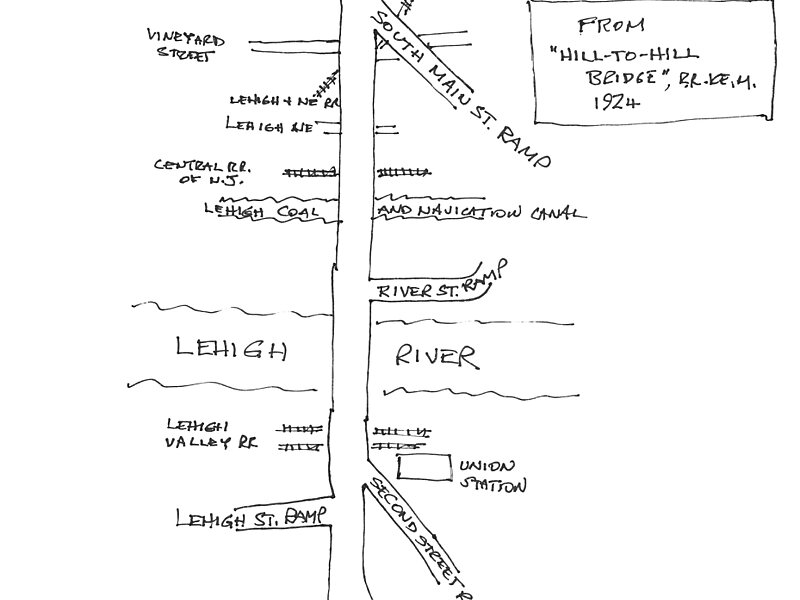 FROM
"HILL-TO-HILL
BRIDGE", BR.KE.M.
1924
SOUTH MAIN ST. RAMP
VINEYARD
STREET
LEHIGH & NE RR
LEHIGH NE
CENTRAL RR.
OF N.J.
LEHIGH COAL AND NAVIGATION CANAL
RIVER ST. RAMP
LEHIGH RIVER
LEHIGH
VALLEY RR
UNION
STATION
SECOND STREET R
LEHIGH ST. RAMP